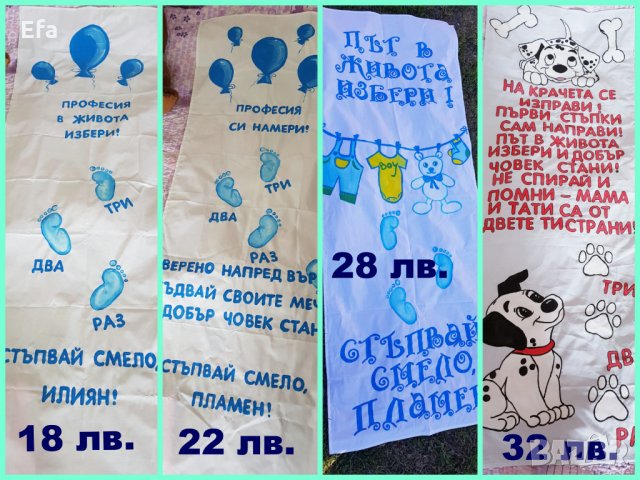 Efa
ПРОФЕСИЯ
В ЖИВОТА
ИЗБЕРИ!
ТРИ
ДВА
РАЗ
СТЪПВАЙ СМЕЛО,
ИЛИЯН!
18 лв.
ПРОФЕСИЯ
СИ НАМЕРИ!
ТРИ
ДВА
РАЗ
ВЕРЕНО НАПРЕД ВЪР
ЪДВАЙ СВОИТЕ МЕЧ
ДОБЪР ЧОВЕК СТАН
СТЪПВАЙ СМЕЛО,
ПЛАМЕН!
22 лв.
ПЪТ В
ЖИВОТА
ИЗБЕРИ!
BOY
28 лв.
СТЪПВАЙ
СМЕЛО,
ПЛАМЕН
НА КРАЧЕТА СЕ
ИЗПРАВИ!
ПЪРВИ СТЪПКИ
САМ НАПРАВИ!
ПЪТ В ЖИВОТА
ИЗБЕРИ И ДОБЪР
ЧОВЕК СТАНИ!
НЕ СПИРАЙ И
ПОМНИ - МАМА
И ТАТИ СА ОТ
ДВЕТЕ ТИ СТРАНИ!
ТРИ
ДВ
РА
32 лв.